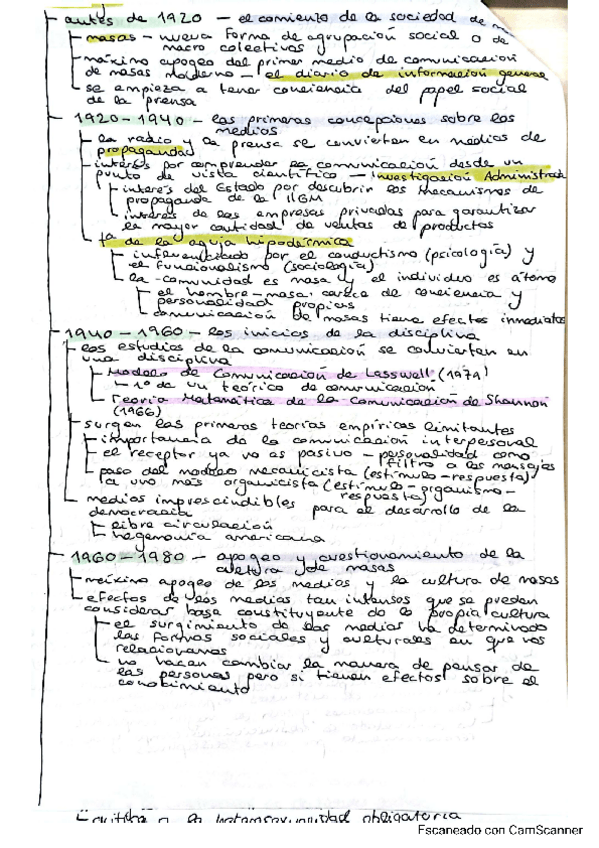 antes de 1920 — el comienzo de la sociedad de
masas — nueva forma de agrupación social o de
macro colectivos
máximo apogeo del primer medio de comunicación
de masas moderno — el diario de información general
se empieza a tener conciencia del papel social
de la prensa
1920 – 1940 — las primeras concepciones sobre los
medios
la radio y la prensa se convierten en medios de
propaganda
interés por comprender la comunicación desde un
punto de vista científico — Investigación Administrat
interés del Estado por descubrir los mecanismos de
propaganda de la IIGM
interés de las empresas privadas para garantizar
la mayor cantidad de ventas de productos
tª de la aguja hipodérmica
por el conductismo (psicología) y
el funcionalismo (sociología)
la comunidad es masa y el individuo es átomo
el hombre-masa: carece de conciencia y
personalidad propias
comunicación de masas tiene efectos inmediatos
1940 – 1960 — los inicios de la disciplina
los estudios de la comunicación se convierten en
una disciplina
Modelo de Comunicación de Lasswell (1979)
1º de un teórico de comunicación
Teoría Matemática de la comunicación de Shannon
(1966)
surgen las primeras teorías empíricas limitantes
importancia de la comunicación interpersonal
el receptor ya no es pasivo — personalidad como
filtro a los mensajes
paso del modelo mecanicista (estímulo-respuesta)
a uno más organicista (estímulo-organismo-
respuesta)
medios imprescindibles para el desarrollo de la
democracia
libre circulación
hegemonía americana
1960 – 1980 — apogeo y cuestionamiento de la
cultura de masas
máximo apogeo de los medios y la cultura de masas
efectos de los medios tan intensos que se pueden
considerar base constituyente de la propia cultura
el surgimiento de los medios ha determinado
las formas sociales y culturales en que nos
relacionamos
no hacen cambiar la manera de pensar de
las personas pero si tienen efectos sobre el
conocimiento
a la heterosexualidad obligatoria
Escaneado con CamScanner